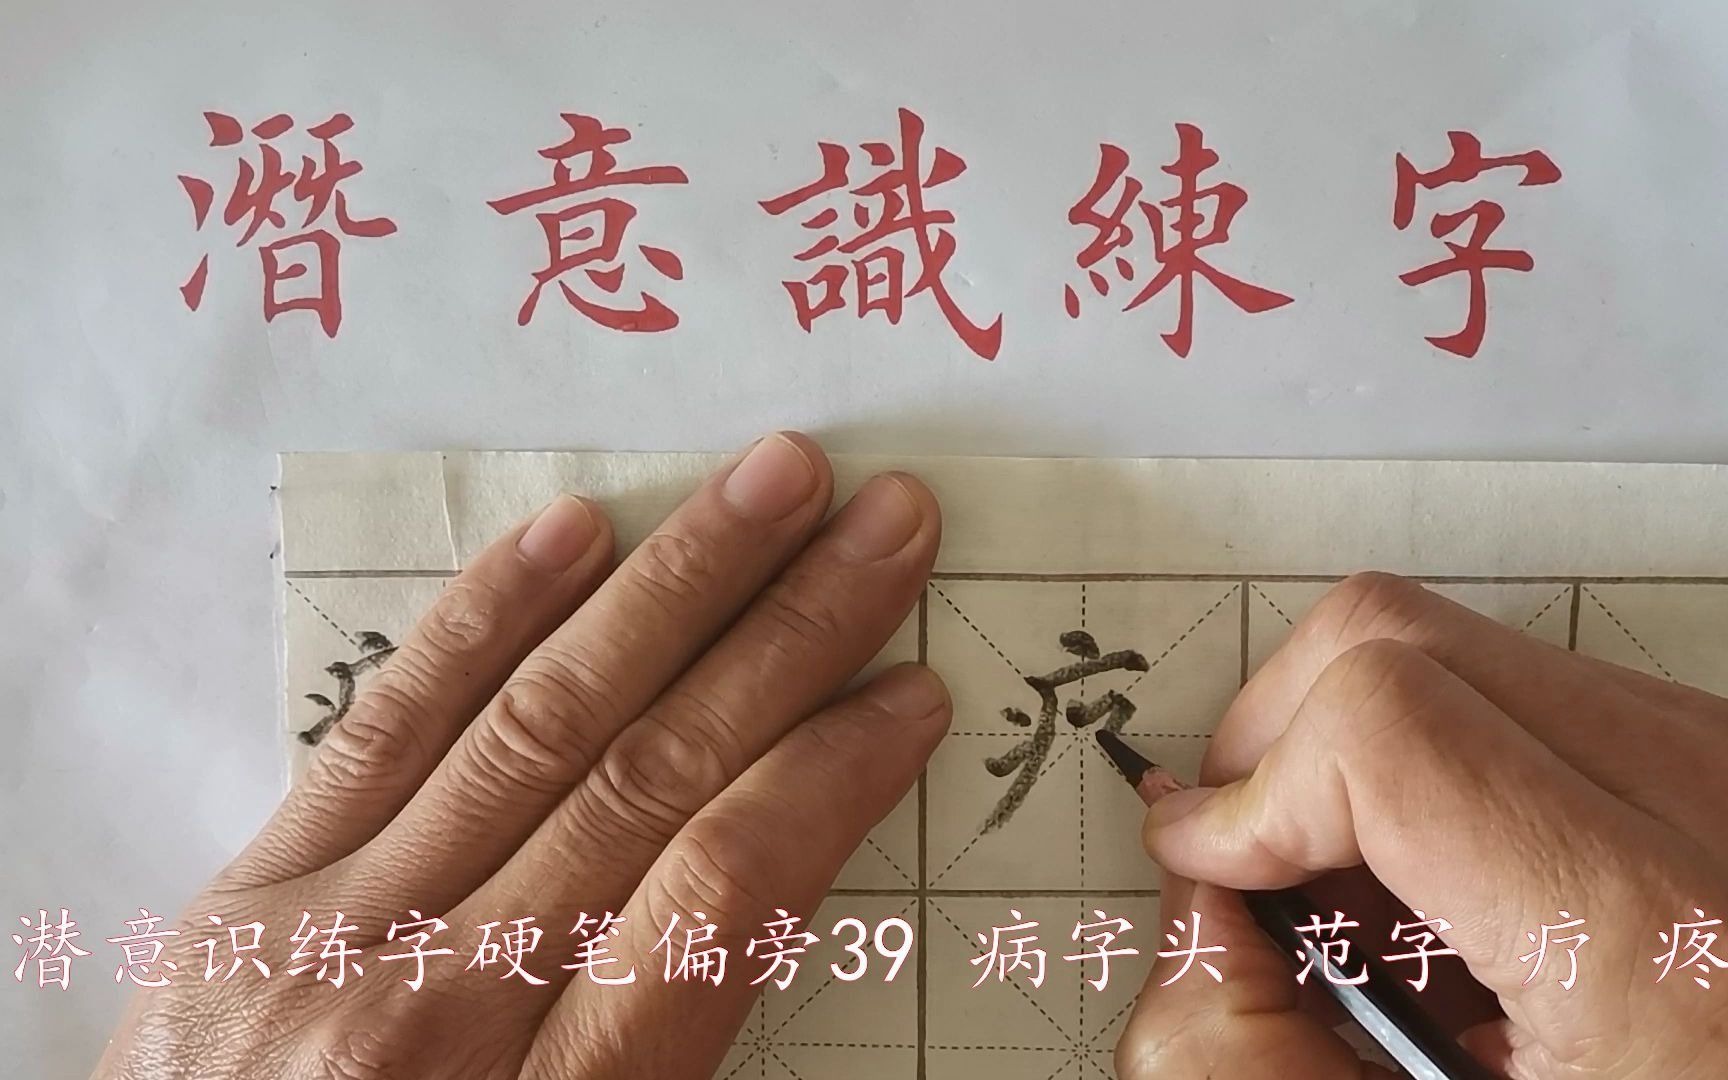 潛意識練字
疗
潜意识练字硬笔偏旁39 病字头 范字 疗 疼